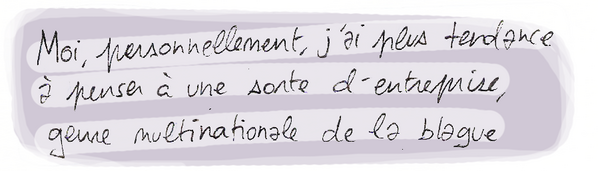 Moi, personnellement, j'ai plus tendance
à penser à une sorte d'entreprise,
genre multinationale de la blague